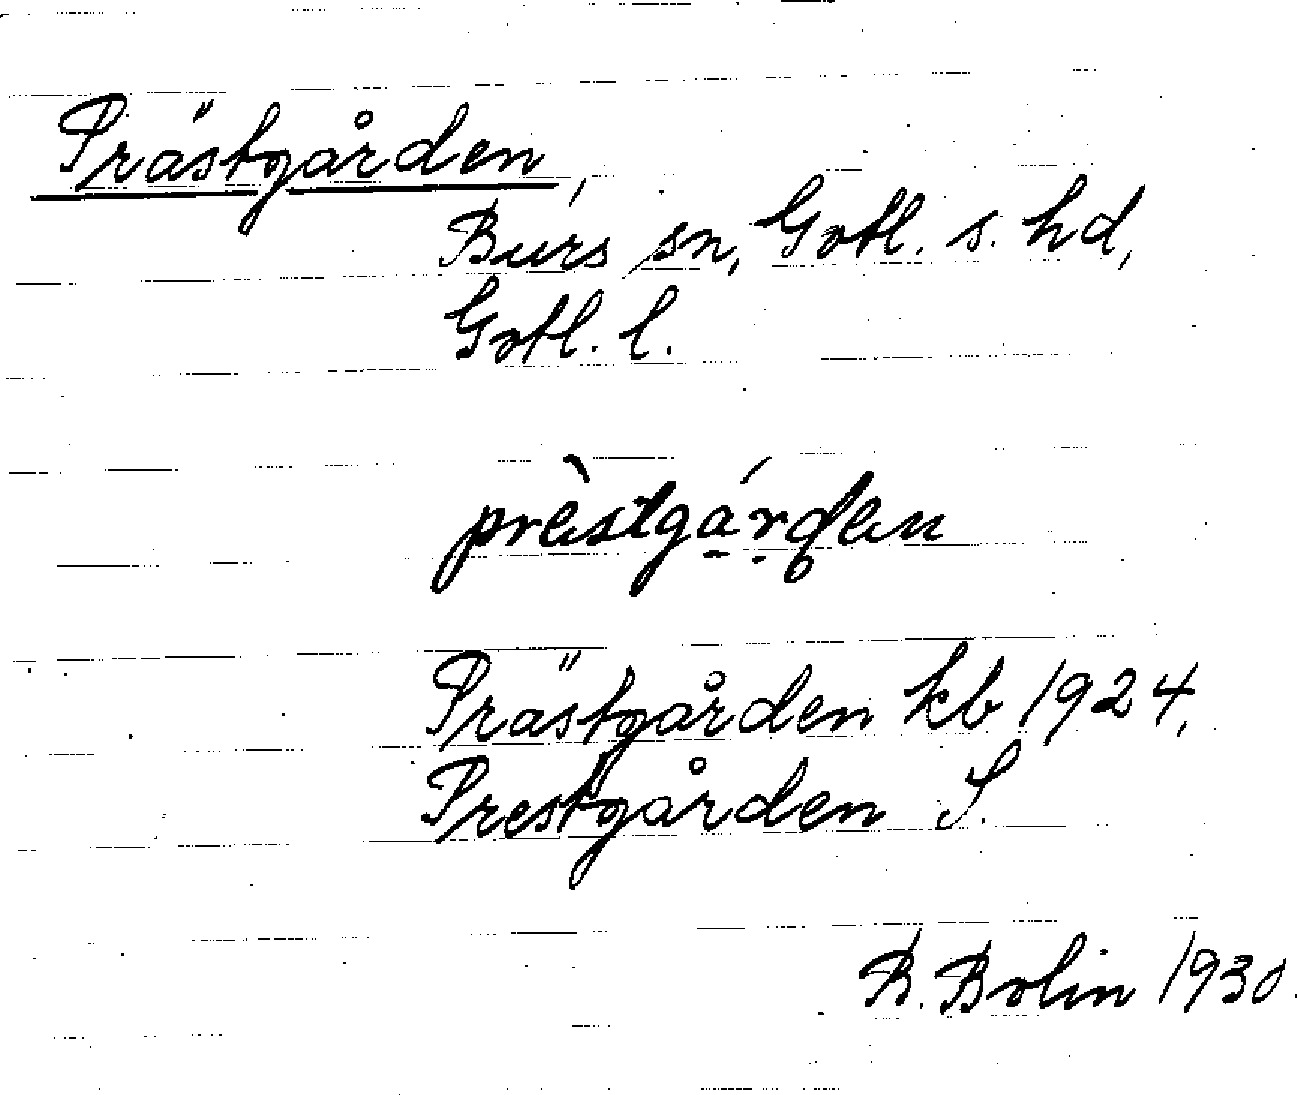 Prästgården,
Burs sn, Gotl. s. hd,
Gotl. l.
prèstgá̠ṛden
Prästgården kb 1924,
Prestgården S.
B. Bolin 1930.